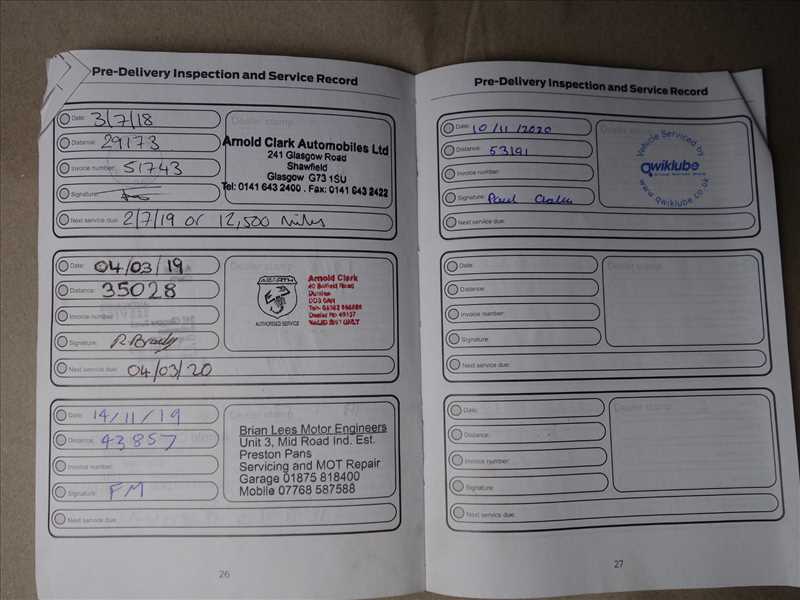 Pre-Delivery Inspection and Service Record
Date: 3/7/18
Distance: 29173
Invoice number: 51743
Signature:
Next service due: 2/7/19 or 12,500 miles
Dealer stamp
Arnold Clark Automobiles Ltd
241 Glasgow Road
Shawfield
Glasgow G73 1SU
Tel: 0141 643 2400 . Fax: 0141 643 2422
Date: 04/03/19
Distance: 35028
Invoice number:
Signature: R Brady
Next service due: 04/03/20
Dealer stamp
ABARTH
AUTHORISED SERVICE
Arnold Clark
Dundee
Date: 14/11/19
Distance: 43857
Invoice number:
Signature: FM
Next service due:
Dealer stamp
Brian Lees Motor Engineers
Unit 3, Mid Road Ind. Est.
Preston Pans
Servicing and MOT Repair
Garage 01875 818400
Mobile 07768 587588
26
Pre-Delivery Inspection and Service Record
Date: 10/11/2020
Distance: 53191
Invoice number:
Signature: Paul
Next service due:
Dealer stamp
Vehicle Serviced by
Qwiklube
www.qwiklube.co.uk
Date:
Distance:
Invoice number:
Signature:
Next service due:
Dealer stamp
Date:
Distance:
Invoice number:
Signature:
Next service due:
Dealer stamp
27